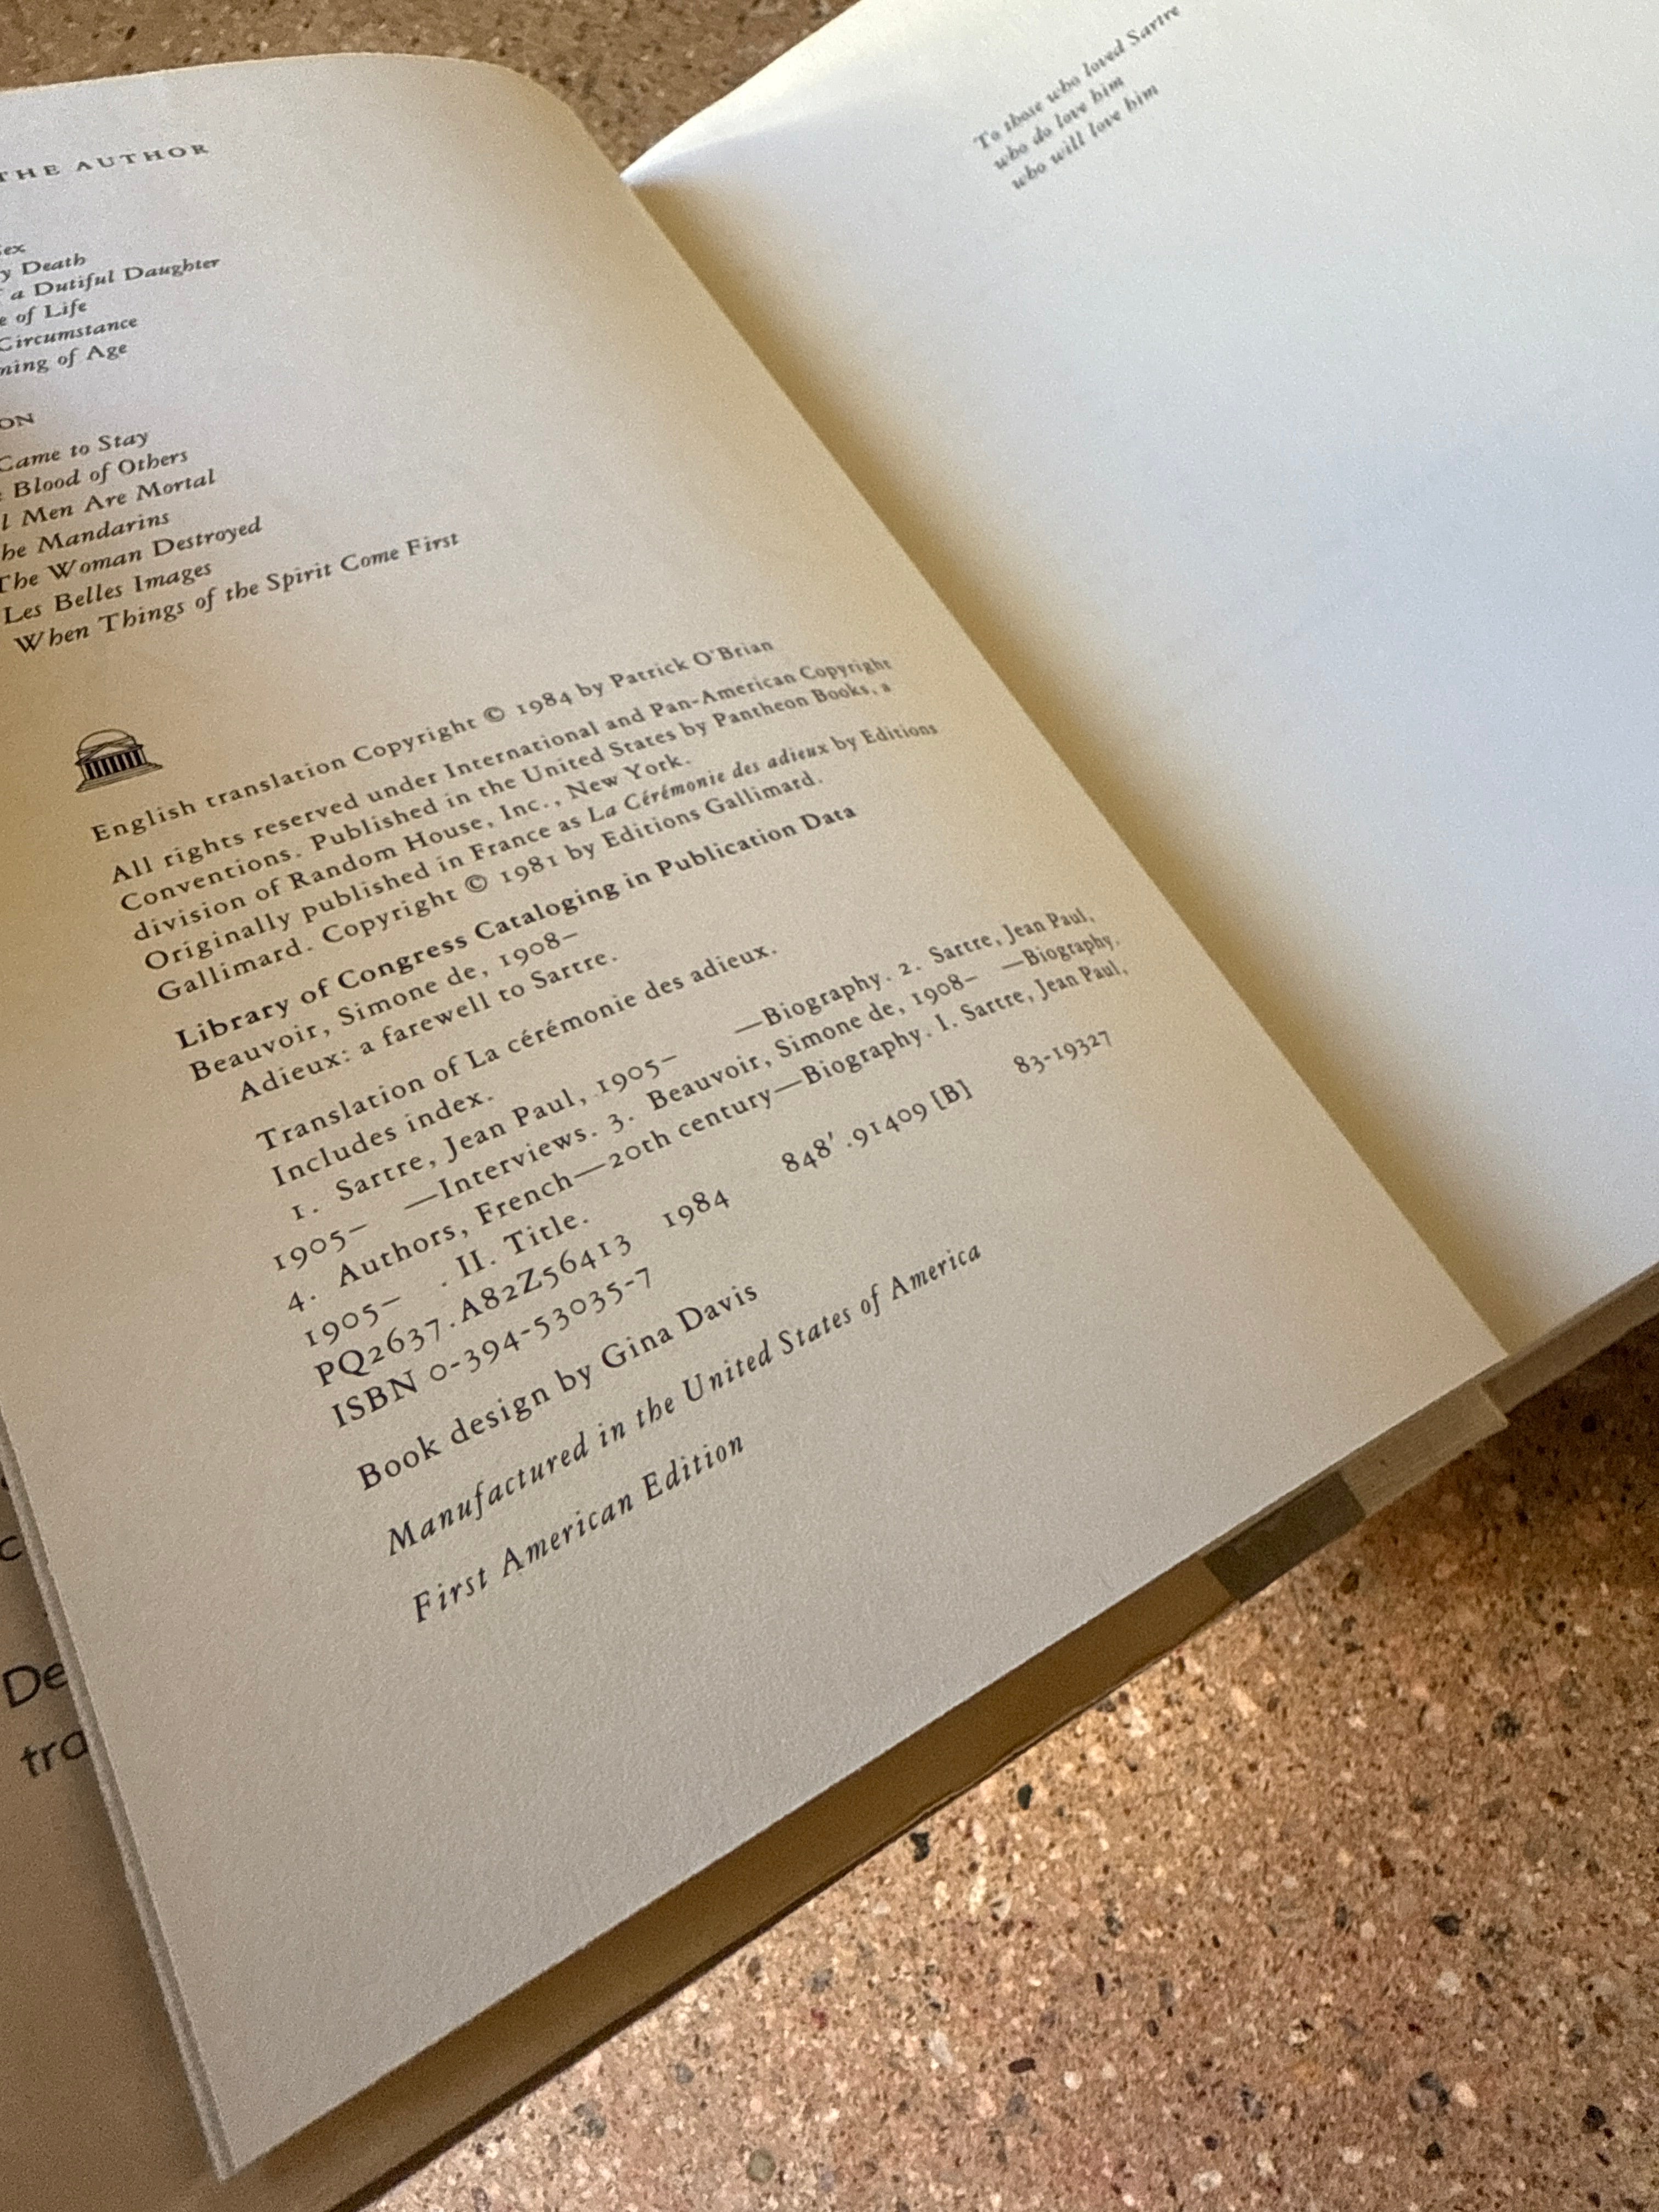 THE AUTHOR
y Death
a Dutiful Daughter
of Life
Circumstance
of Age
Came to Stay
Blood of Others
Men Are Mortal
Mandarins
The Woman Destroyed
Les Belles Images
When Things of the Spirit Come First
English translation Copyright © 1984 by Patrick O'Brian
All rights reserved under International and Pan-American Copyright
Conventions. Published in the United States by Pantheon Books, a
division of Random House, Inc., New York.
Originally published in France as La Cérémonie des adieux by Editions
Gallimard. Copyright © 1981 by Editions Gallimard.
Library of Congress Cataloging in Publication Data
Beauvoir, Simone de, 1908–
Adieux: a farewell to Sartre.
Translation of La cérémonie des adieux.
Includes index.
1. Sartre, Jean Paul, 1905– —Biography. 2. Sartre, Jean Paul,
1905– —Interviews. 3. Beauvoir, Simone de, 1908– —Biography.
4. Authors, French—20th century—Biography. I. Sartre, Jean Paul,
1905– . II. Title.
PQ2637.A82Z56413 1984 848'.91409 [B] 83-19327
ISBN 0-394-53035-7
Book design by Gina Davis
Manufactured in the United States of America
First American Edition
To those who loved Sartre
who do love him
who will love him